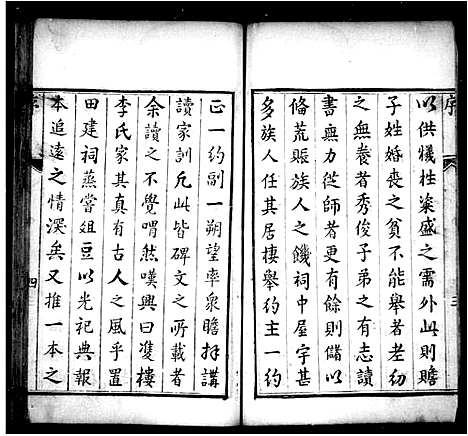 序
三
以供犧牲粢盛之需外此則贍
子姓婚喪之貧不能舉者老幼
之無養者秀俊子弟之有志讀
書無力從師者更有餘則儲以
俻荒賑族人之饑祠中屋宇甚
多族人任其居棲舉約主一約
正一約副一朔望率衆瞻拜講
讀家訓凡此皆碑文之所載者
余讀之不覺喟然嘆興曰雙樓
李氏家其真有古人之風乎置
田建祠蒸嘗俎豆以光祀典報
本追遠之情深矣又推一本之
四